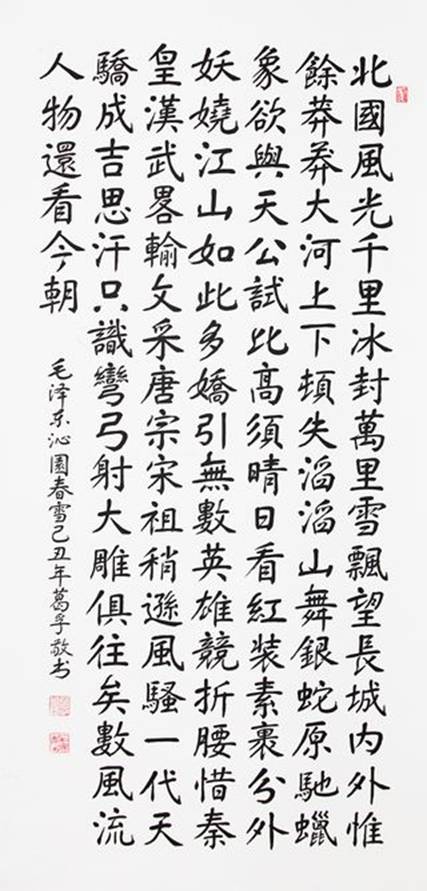 北國風光千里冰封萬里雪飄望長城内外惟
餘莽莽大河上下頓失滔滔山舞銀蛇原馳蠟
象欲與天公試比高須晴日看紅装素裹分外
妖嬈江山如此多嬌引無數英雄競折腰惜秦
皇漢武畧輸文采唐宗宋祖稍遜風騷一代天
驕成吉思汗只識彎弓射大雕俱往矣數風流
人物還看今朝
毛泽东沁園春雪己丑年葛孚敬书